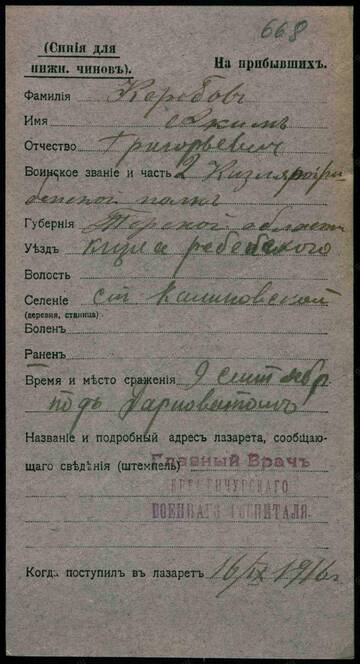 668
(Синія для
нижн. чиновъ).
На прибывшихъ.
Фамилія Коробовъ
Имя Екимъ
Отчество Григорьевич
Воинское званіе и часть 2 Кизляро-гре
бенской полкъ
Губернія Терской области
Уѣздъ
Волость
Селеніе ст Калиновской
(деревня, станица)
Боленъ
Раненъ
Время и мѣсто сраженія 9 сентябр
подъ
Названіе и подробный адресъ лазарета, сообщаю-
щаго свѣдѣнія (штемпель) Главный Врачъ
ВОЕННАГО ГОСПИТАЛЯ.
Когда поступилъ въ лазаретъ 16/IX 1916 г